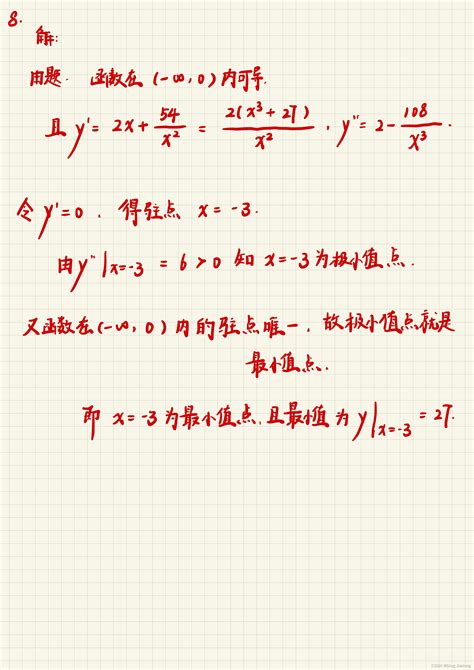 8.
解:
由题. 函数在 (-∞, 0) 内可导.
且 y' = 2x + 54/x² = 2(x³ + 27)/x² , y'' = 2 - 108/x³.
令 y' = 0 , 得驻点 x = -3.
由 y''|x=-3 = 6 > 0 知 x = -3 为极小值点.
又函数在 (-∞, 0) 内的驻点唯一, 故极小值点就是
最小值点.
即 x = -3 为最小值点, 且最小值为 y|x=-3 = 27.